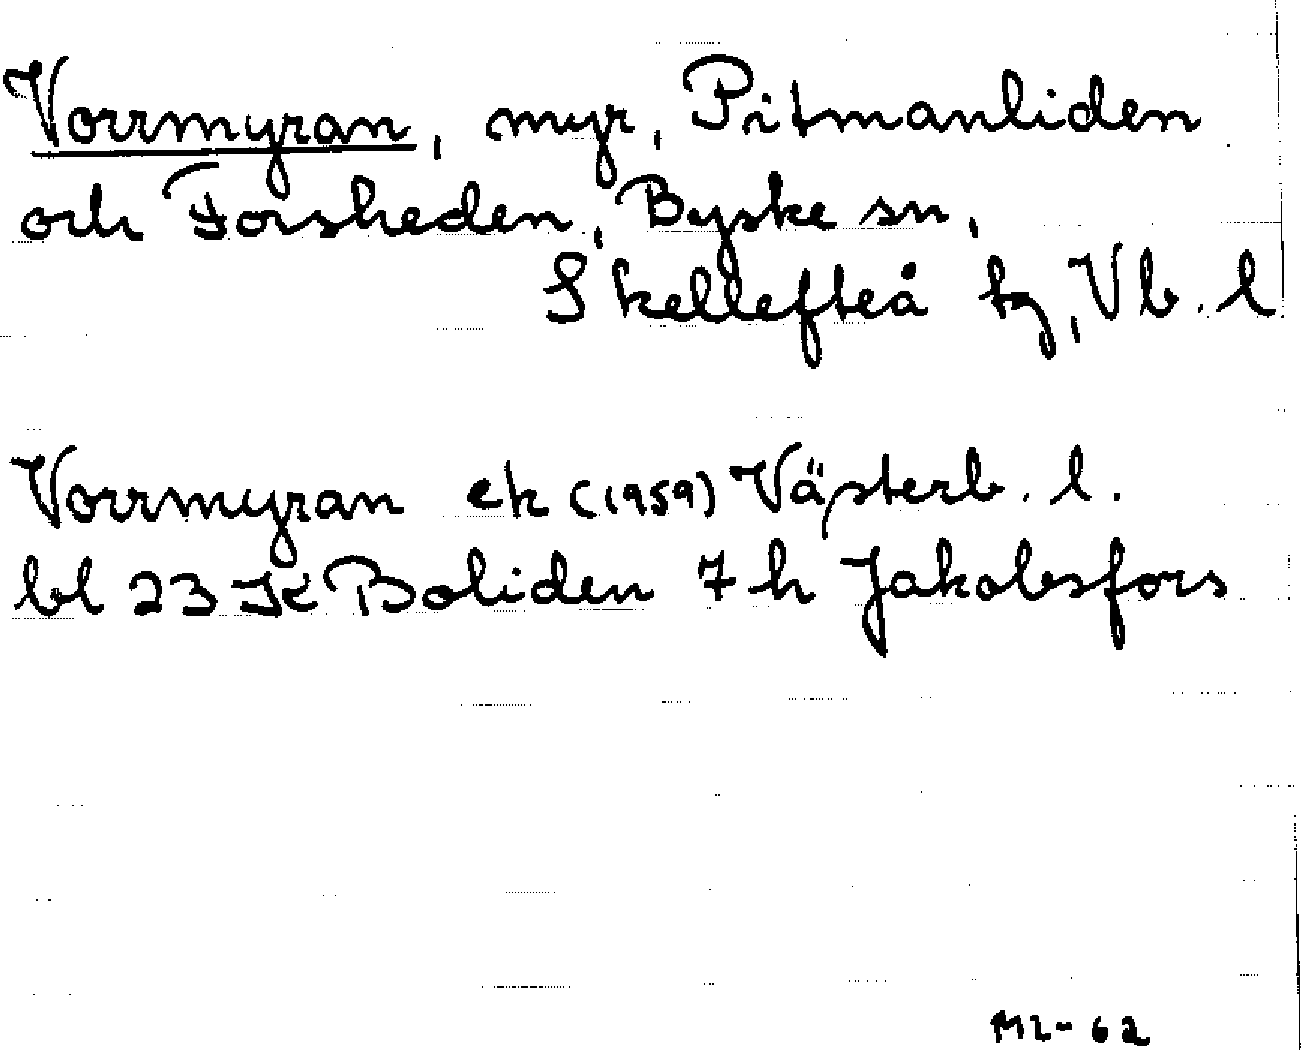 Vorrmyran, myr, Pitmanliden
och Forsheden, Byske sn,
Skellefteå tg, Vb. l
Vorrmyran ek (1959) Västerb. l.
bl 23 K Boliden 7 h Jakobsfors